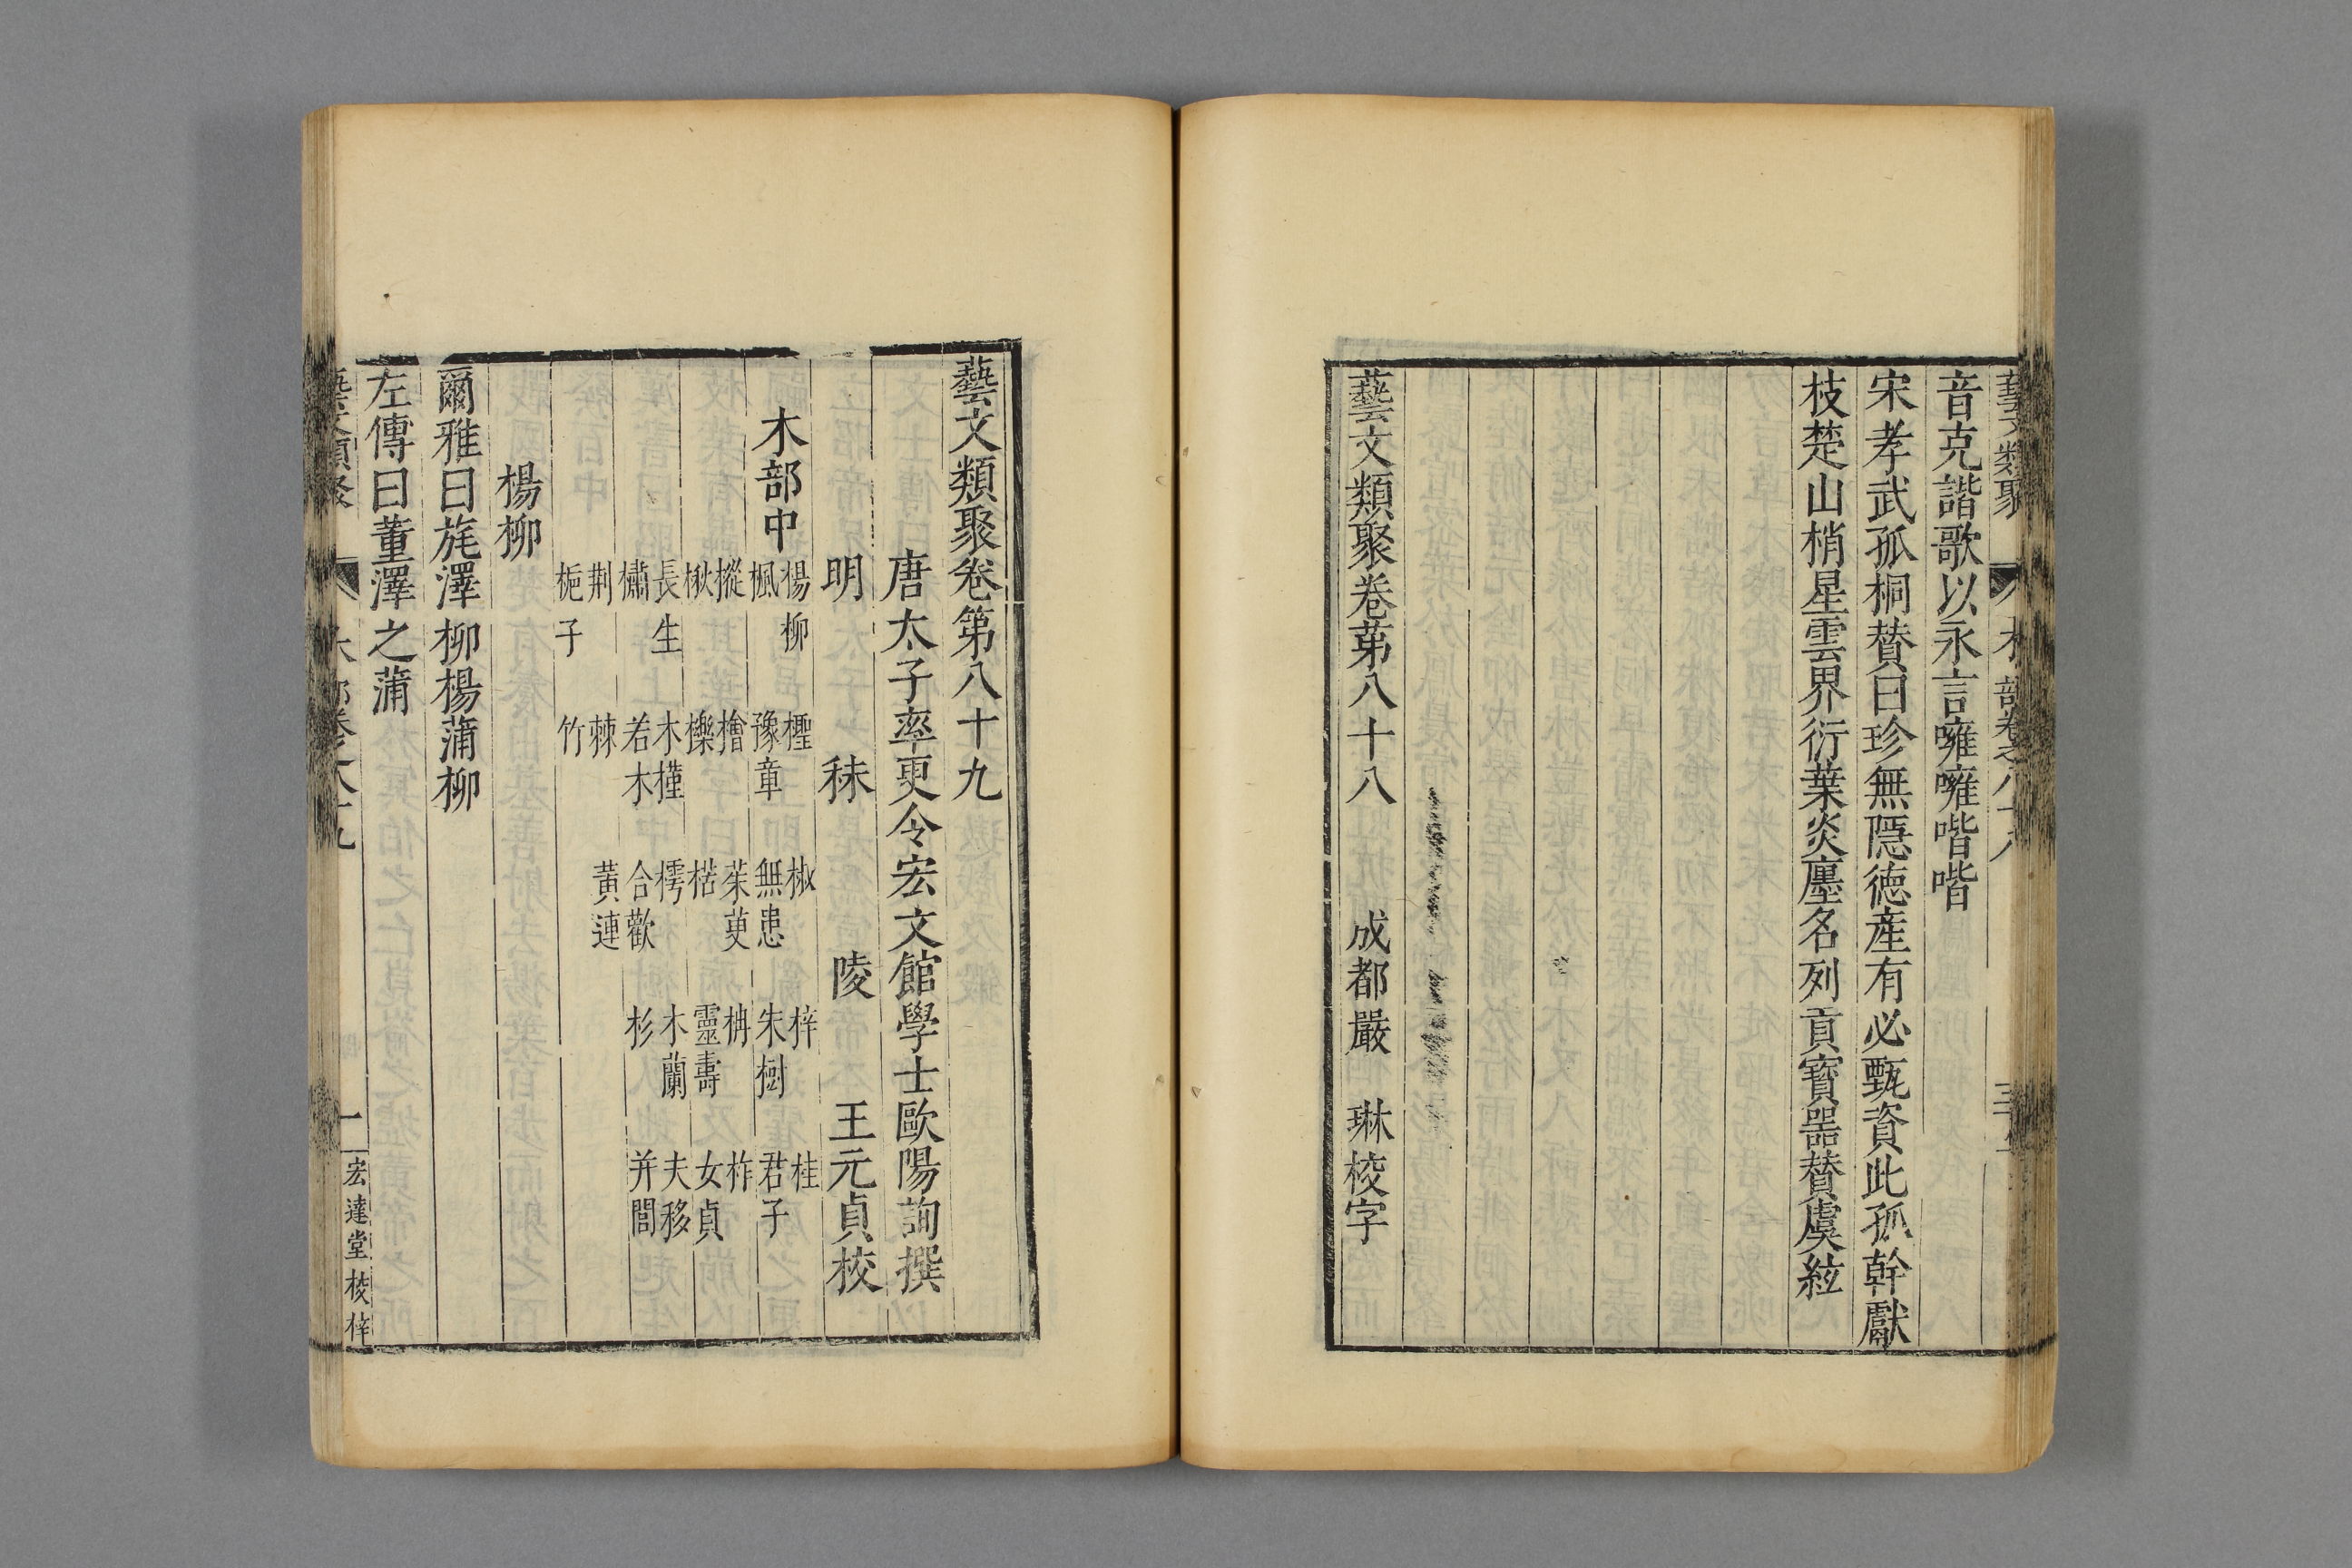 音克諧歌以永言嗈嗈喈喈
宋孝武孤桐贊曰珍無隱德産有必甄資此孤幹獻
枝楚山梢星雲界衍葉炎廛名列貢寶器贊虞絃
藝文類聚卷苐八十八 成都嚴 琳校字
藝文類聚卷第八十九
唐太子率更令宏文館學士歐陽詢撰
明 秣 陵 王元貞校
木部中
楊柳 檉 椒 梓 桂
楓 豫章 無患 朱樹 君子
樅 檜 茱萸 柟 柞
楸 櫟 楛 靈壽 女貞
長生 木槿 樗 木蘭 夫移
櫹 若木 合歡 杉 并閭
荆 棘 黃連
梔子 竹
楊柳
爾雅曰旄澤柳楊蒲柳
左傳曰董澤之蒲
藝文類聚 木部卷之八十九 一 宏達堂校梓